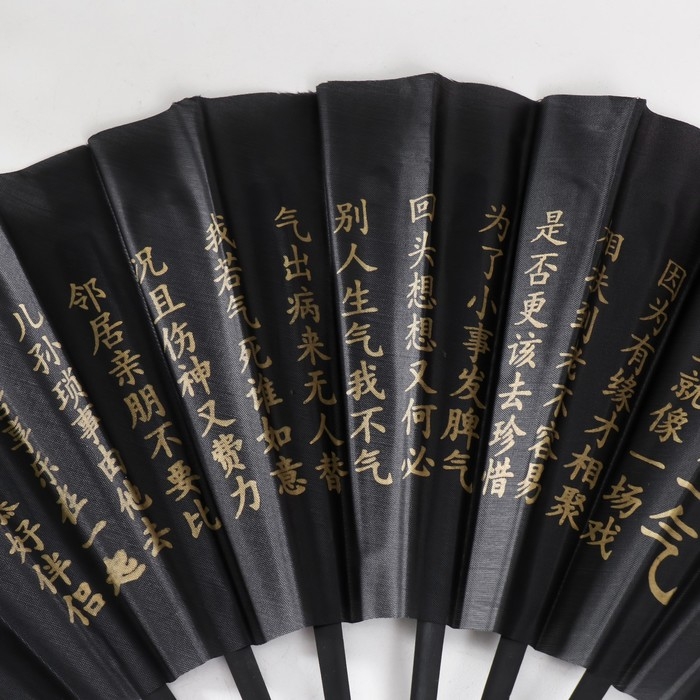 气
就像一场戏
因为有缘才相聚
相扶到老不容易
是否更该去珍惜
为了小事发脾气
回头想想又何必
别人生气我不气
气出病来无人替
我若气死谁如意
况且伤神又费力
邻居亲朋不要比
儿孙琐事由他去
享乐在一起
好伴侣